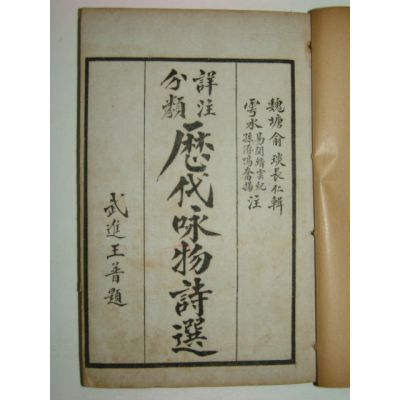 魏塘俞琰長仁輯
水
易開縉雲紀
孫洊鳴奮揚
注
詳注
分類
歴代咏物詩選
武進王普題